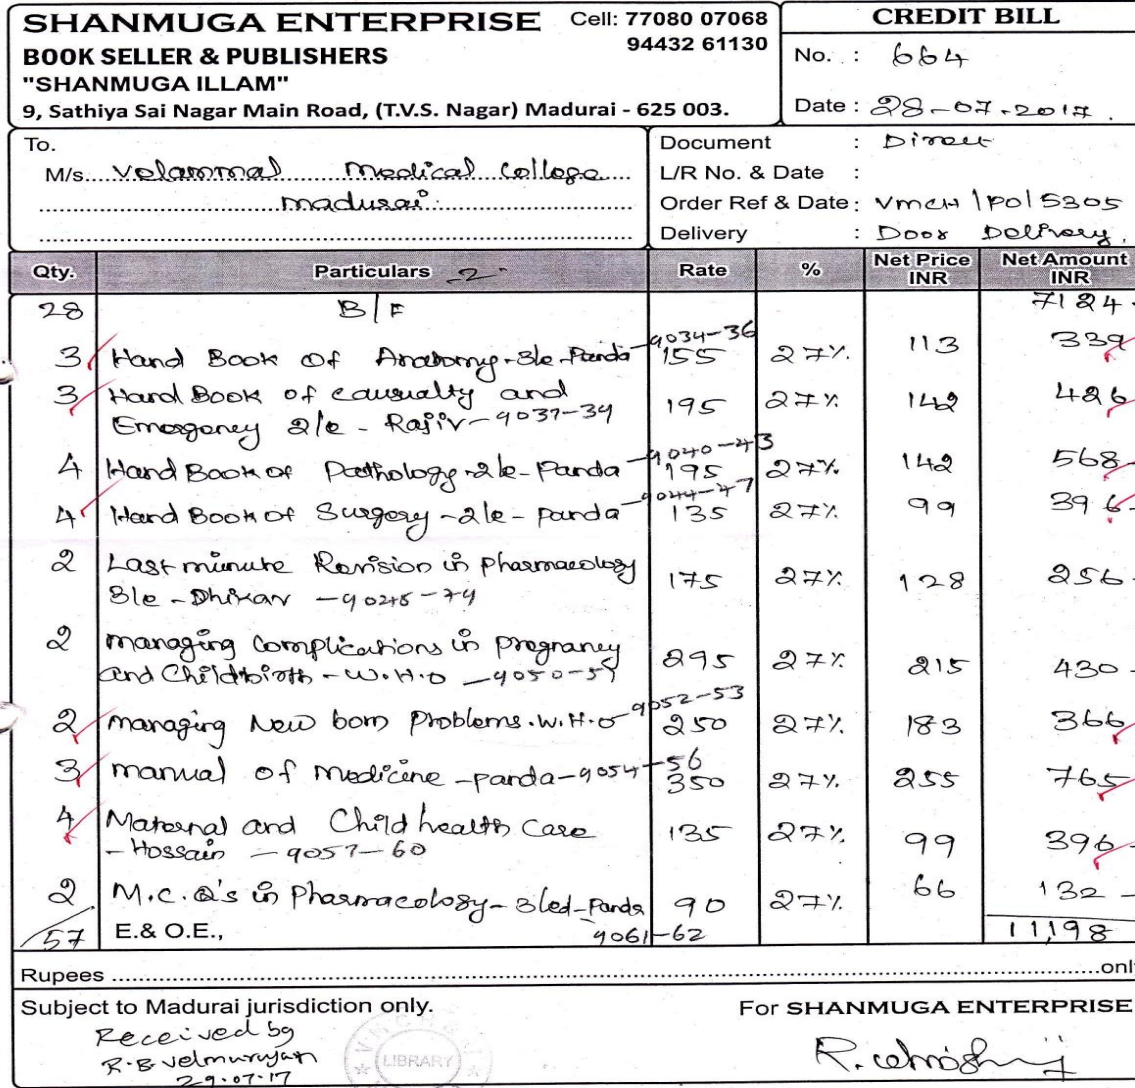 SHANMUGA ENTERPRISE Cell: 77080 07068
BOOK SELLER & PUBLISHERS 94432 61130
"SHANMUGA ILLAM"
9, Sathiya Sai Nagar Main Road, (T.V.S. Nagar) Madurai - 625 003.
CREDIT BILL
No. : 664
Date : 28-07-2017.
To.
M/s. Velammal Medical College
Madurai.
Document : Direct
L/R No. & Date :
Order Ref & Date : VMCH/PO/5305
Delivery : Door Delivery.
Qty. Particulars 2 Rate % Net Price INR Net Amount INR
28 B/F 7124-
3 Hand Book Of Anatomy-3/e-Panda -9034-36 155 27% 113 339
3 Hand Book of causualty and
Emergency 2/e - Rajiv-9037-39 195 27% 142 426
4 Hand Book of Pathology-2/e-Panda -9040-43 195 27% 142 568
4 Hand Book of Surgery-2/e-Panda -9044-47 135 27% 99 396
2 Last minute Revision in Pharmacology
3/e-Dhikav -9048-49 175 27% 128 256-
2 managing Complications in Pregnancy
and Childbirth-W.H.O -9050-51 295 27% 215 430-
2 managing New born Problems.W.H.O-9052-53 250 27% 183 366
3 manual of medicine-panda-9054-56 350 27% 255 765
4 Maternal and Child health Care
-Hossain -9057-60 135 27% 99 396-
2 M.C.Q's in Pharmacology-3/ed-Panda 90 27% 66 132-
57 E.& O.E., 9061-62 11,198
Rupees only
Subject to Madurai jurisdiction only. For SHANMUGA ENTERPRISE
Received by
R.B velmurugan
29.07.17
LIBRARY